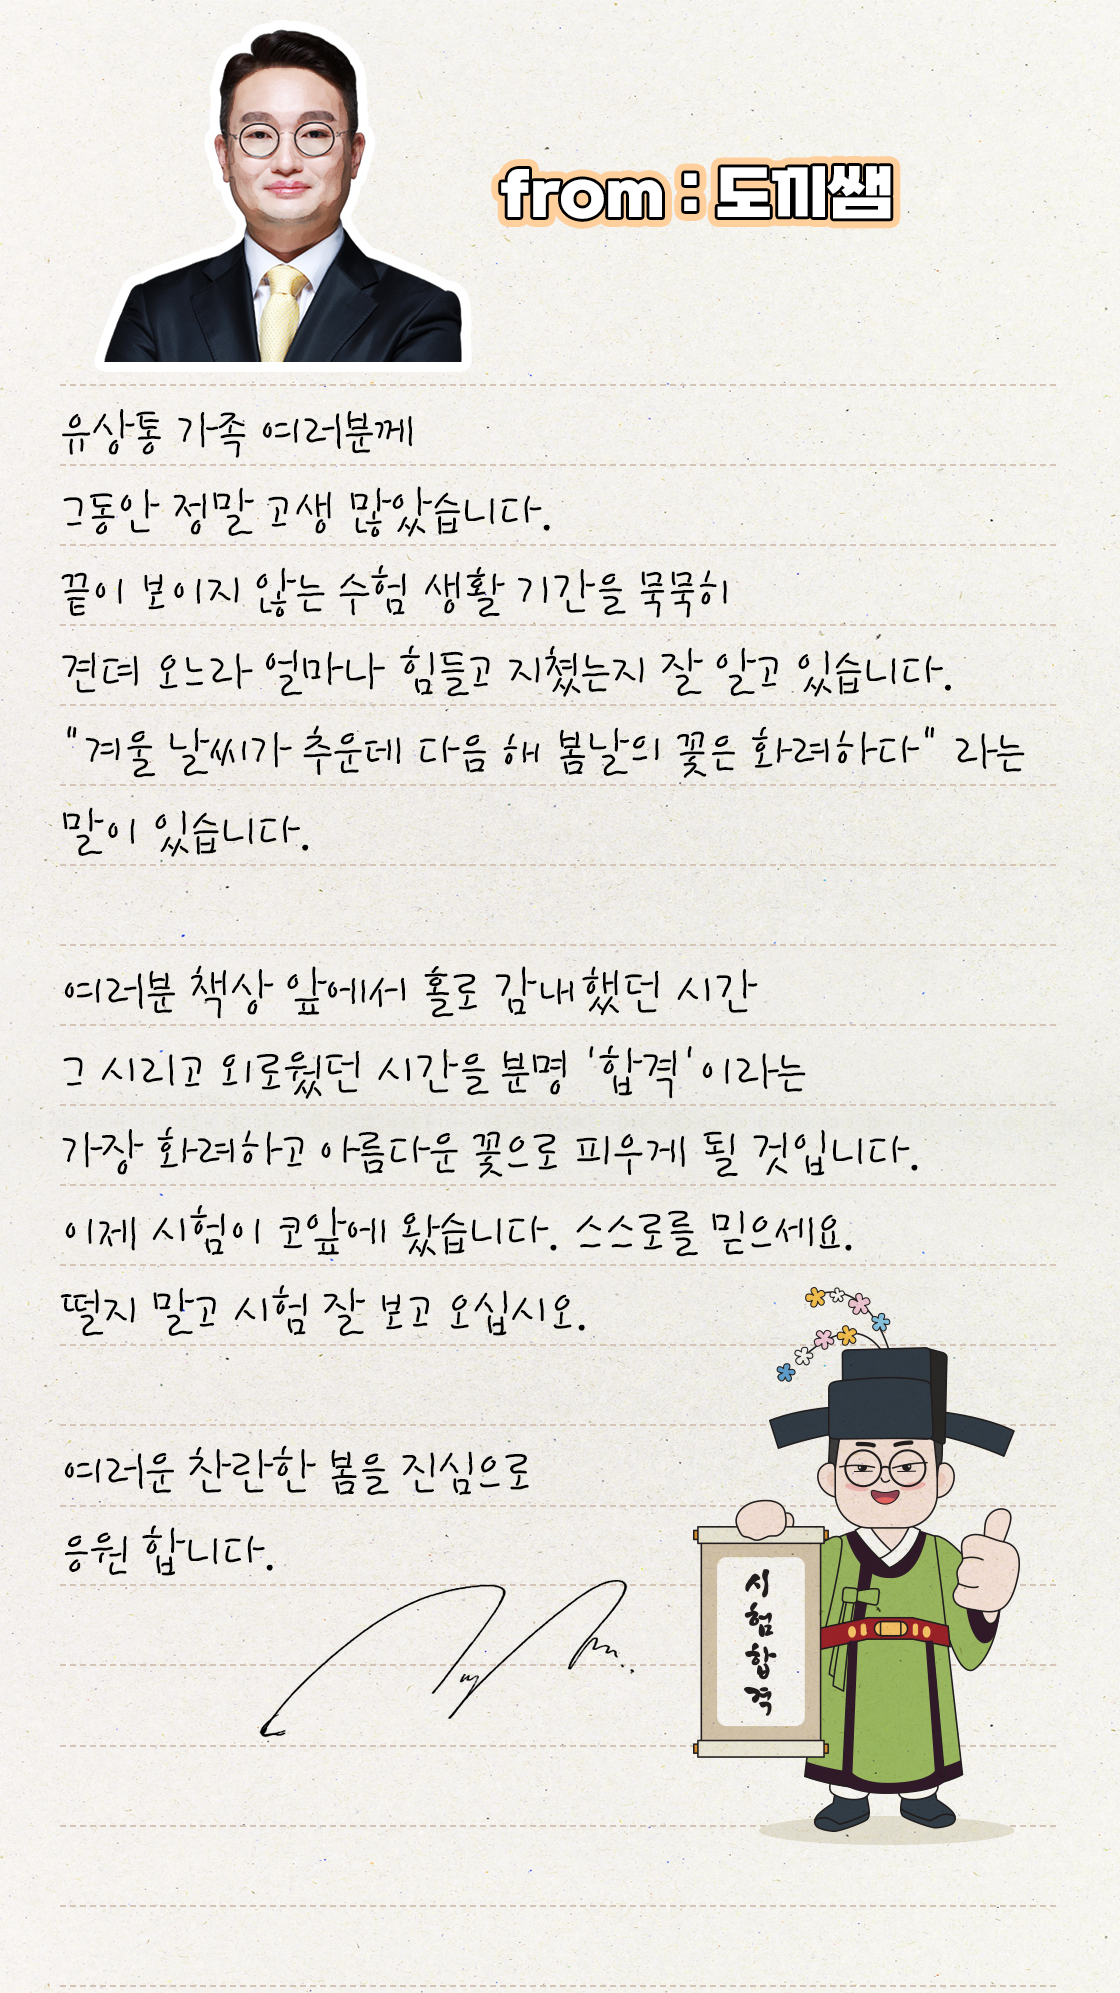 from : 도끼쌤
유상통 가족 여러분께
그동안 정말 고생 많았습니다.
끝이 보이지 않는 수험 생활 기간을 묵묵히
견뎌 오느라 얼마나 힘들고 지쳤는지 잘 알고 있습니다.
"겨울 날씨가 추운데 다음 해 봄날의 꽃은 화려하다" 라는
말이 있습니다.
여러분 책상 앞에서 홀로 감내했던 시간
그 시리고 외로웠던 시간을 분명 '합격'이라는
가장 화려하고 아름다운 꽃으로 피우게 될 것입니다.
이제 시험이 코앞에 왔습니다. 스스로를 믿으세요.
떨지 말고 시험 잘 보고 오십시오.
여러운 찬란한 봄을 진심으로
응원 합니다.
시험합격